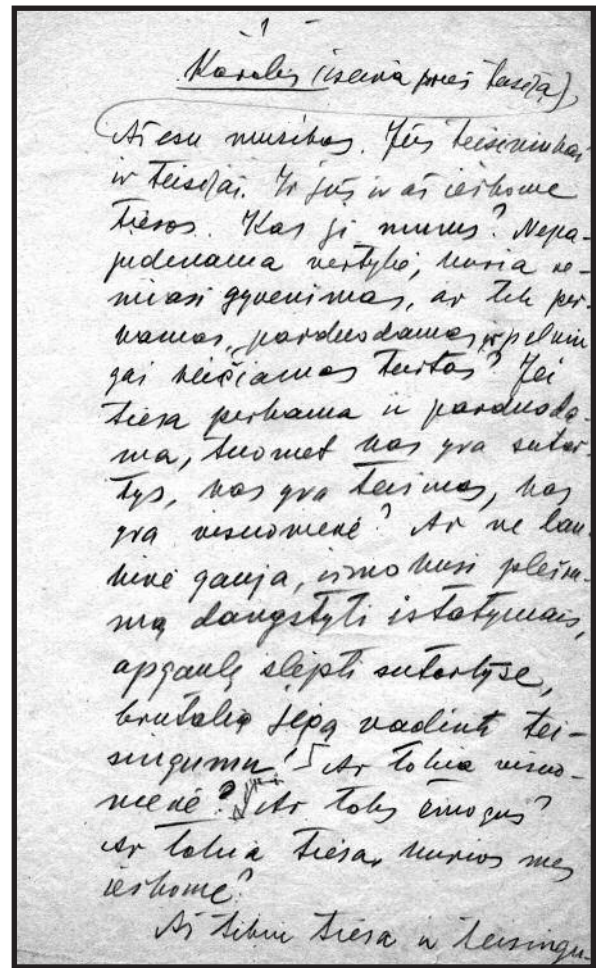 1
Karalius (išeina prieš teisėją).
Aš esu muzikas. Jūs teisininkai
ir teisėjai. Ir jūs ir aš ieškome
tiesos. Kas ji mums? Nepa-
judenama vertybė, kuria re-
miasi gyvenimas, ar tik per-
kamas, parduodamas ir pelnin
gai keičiamas turtas? Jei
tiesa perkama ir parduoda-
ma, tuomet kas yra sutar-
tys, kas yra teismas, kas
yra visuomenė? Ar ne lau-
kinė gauja, išmokusi plėši-
mą dangstyti įstatymais,
apgaulę slėpti sutartyse,
brutalią jėgą vadinti tei-
singumu! Ar tokia visuo-
menė? Ar toks žmogus?
Ar tokia tiesa, kurios mes
ieškome?
Aš tikiu tiesa ir teisingu-